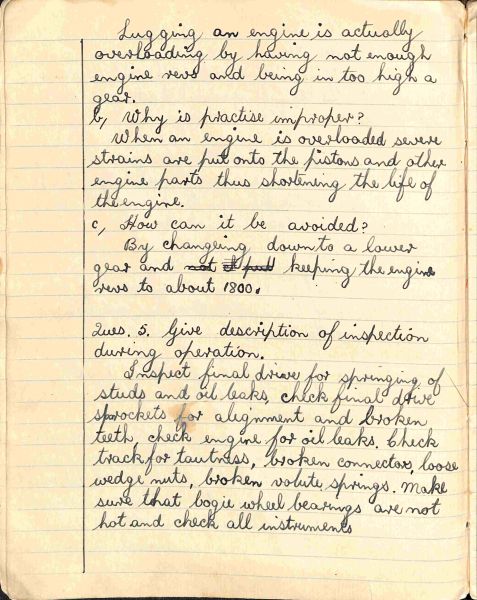 Lugging an engine is actually
overloading by having not enough
engine revs and being in too high a
gear.
b, Why is practise improper?
When an engine is overloaded severe
strains are put onto the pistons and other
engine parts thus shortening the life of
the engine.
c, How can it be avoided?
By changeing down to a lower
gear and not it put keeping the engine
revs to about 1800.
Ques. 5. Give description of inspection
during operation.
Inspect final drive for springing of
studs and oil leaks, check final drive
sprockets for alignment and broken
teeth, check engine for oil leaks. Check
track for tautness, broken connectors, loose
wedge nuts, broken volute springs. Make
sure that bogie wheel bearings are not
hot and check all instruments